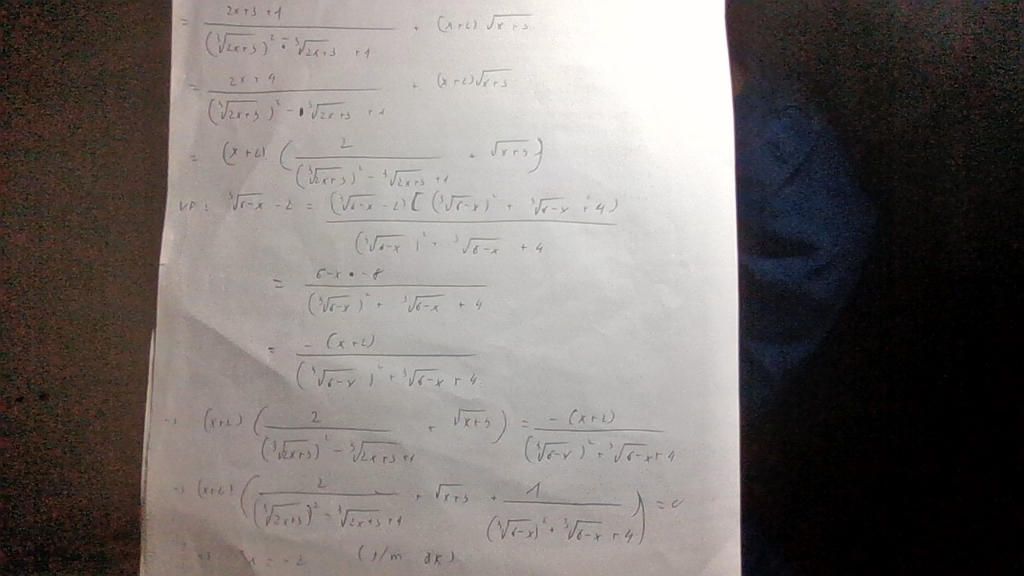 = (2x+3+1)/((∛(2x+3))² - ∛(2x+3) + 1) + (x+2)√(x+3)
= (2x+4)/((∛(2x+3))² - ∛(2x+3) + 1) + (x+2)√(x+3)
= (x+2)(2/((∛(2x+3))² - ∛(2x+3) + 1) + √(x+3))
VP: ∛(6-x) - 2 = (∛(6-x) - 2)[(∛(6-x))² + ∛(6-x) + 4)/((∛(6-x))² + ∛(6-x) + 4)
= (6-x-8)/((∛(6-x))² + ∛(6-x) + 4)
= -(x+2)/((∛(6-x))² + ∛(6-x) + 4)
→ (x+2)(2/((∛(2x+3))² - ∛(2x+3) + 1) + √(x+3)) = -(x+2)/((∛(6-x))² + ∛(6-x) + 4)
→ (x+2)(2/((∛(2x+3))² - ∛(2x+3) + 1) + √(x+3) + 1/((∛(6-x))² + ∛(6-x) + 4)) = 0
x = -2 (t/m đk)